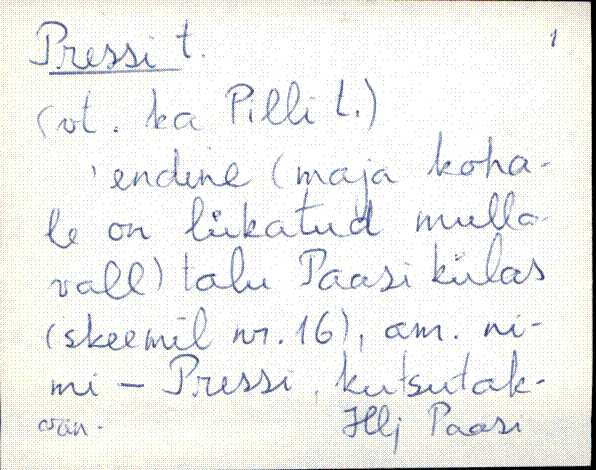 Pressi t. 1
(vt. ka Pilli t.)
'endine (maja koha-
le on lükatud mulla-
vall) talu Paasi külas
(skeemil nr. 16), am. ni-
mi – Pressi, kutsutak-
Hlj Paasi